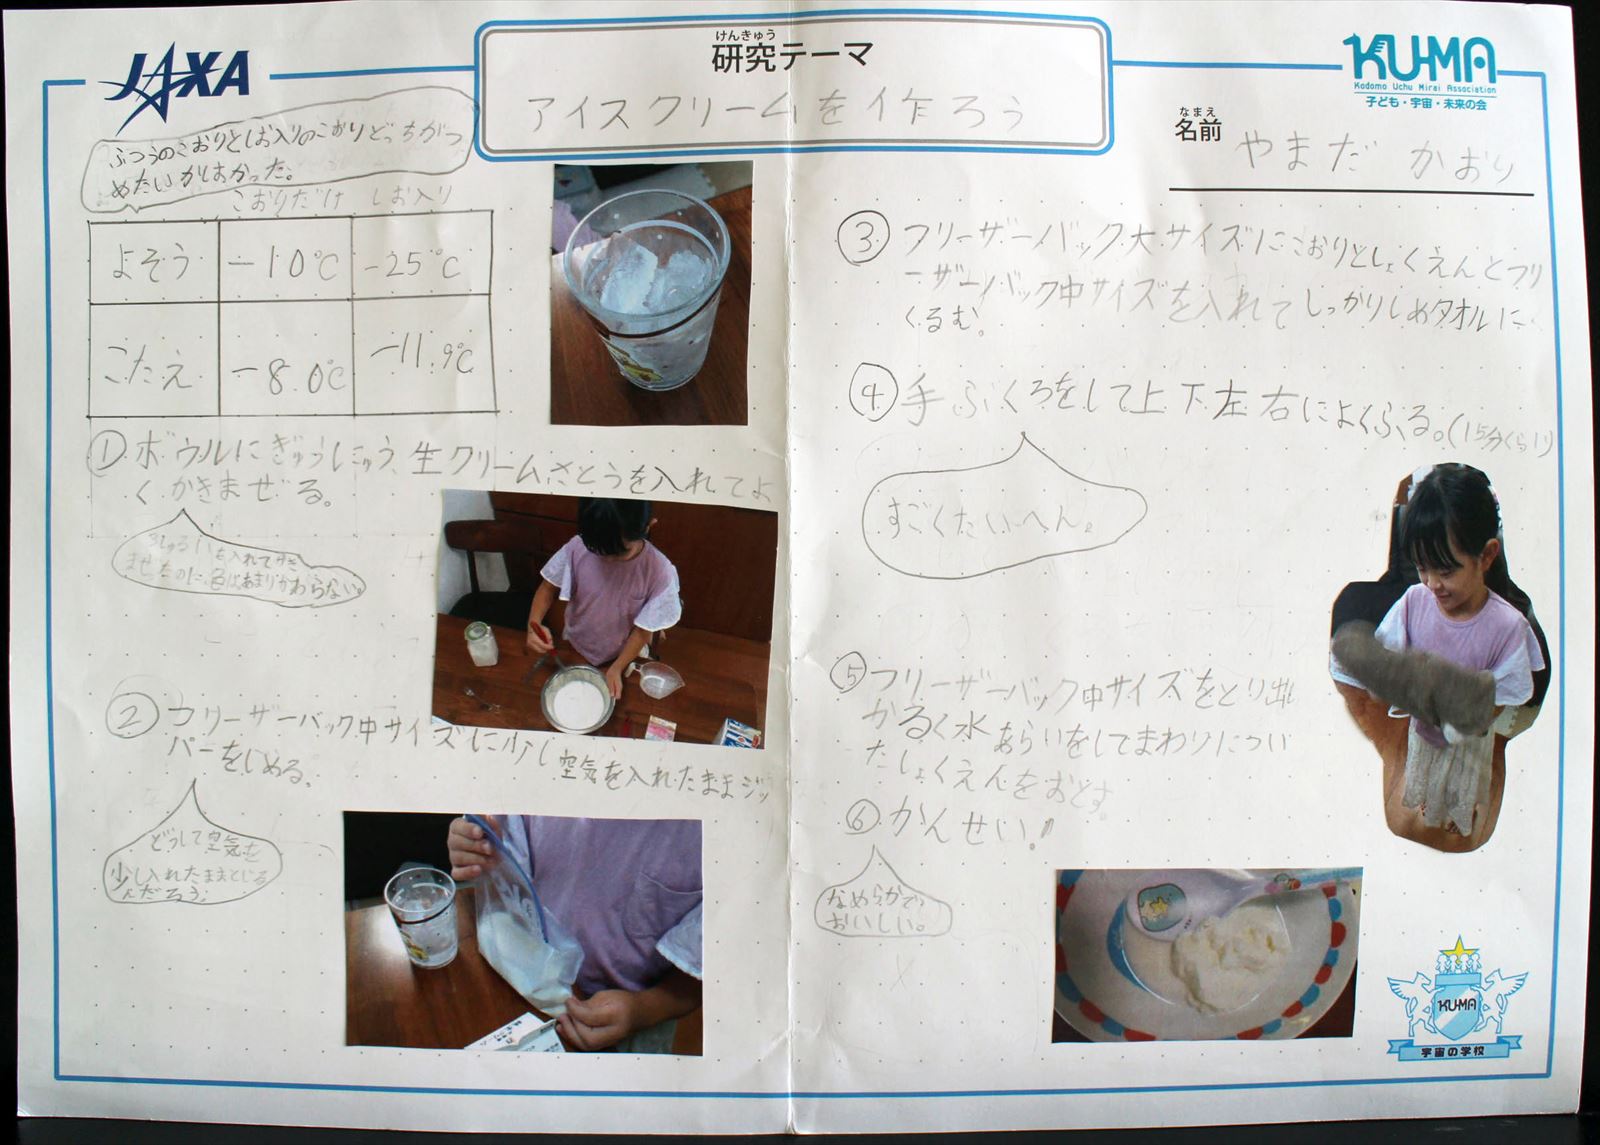 JAXA
けんきゅう
研究テーマ
アイスクリームを作ろう
KU-MA
Kodomo Uchu Mirai Association
子ども・宇宙・未来の会
なまえ
名前
やまだ かおり
ふつうのこおりとしお入りのこおりどっちがつ
めたいかはかった。
こおりだけ しお入り
よそう -10℃ -25℃
こたえ -8.0℃ -11.9℃
① ボウルにぎゅうにゅう、生クリームさとうを入れてよ
くかきまぜる。
入れてかき
ませたのに、色はあまりかわらない。
② フリーザーバック中サイズに少し空気を入れたままジッ
パーをしめる。
どうして空気を
少し入れたままとじる
んだろう。
③ フリーザーバック大サイズにこおりとしょくえんとフリ
ーザーバック中サイズを入れてしっかりしめタオルに
くるむ。
④ 手ぶくろをして上下左右によくふる。(15分くらい)
すごくたいへん。
⑤ フリーザーバック中サイズをとり出し
かるく水あらいをしてまわりについ
たしょくえんをおとす。
⑥ かんせい!
なめらかで、
おいしい。
KU-MA
宇宙の学校